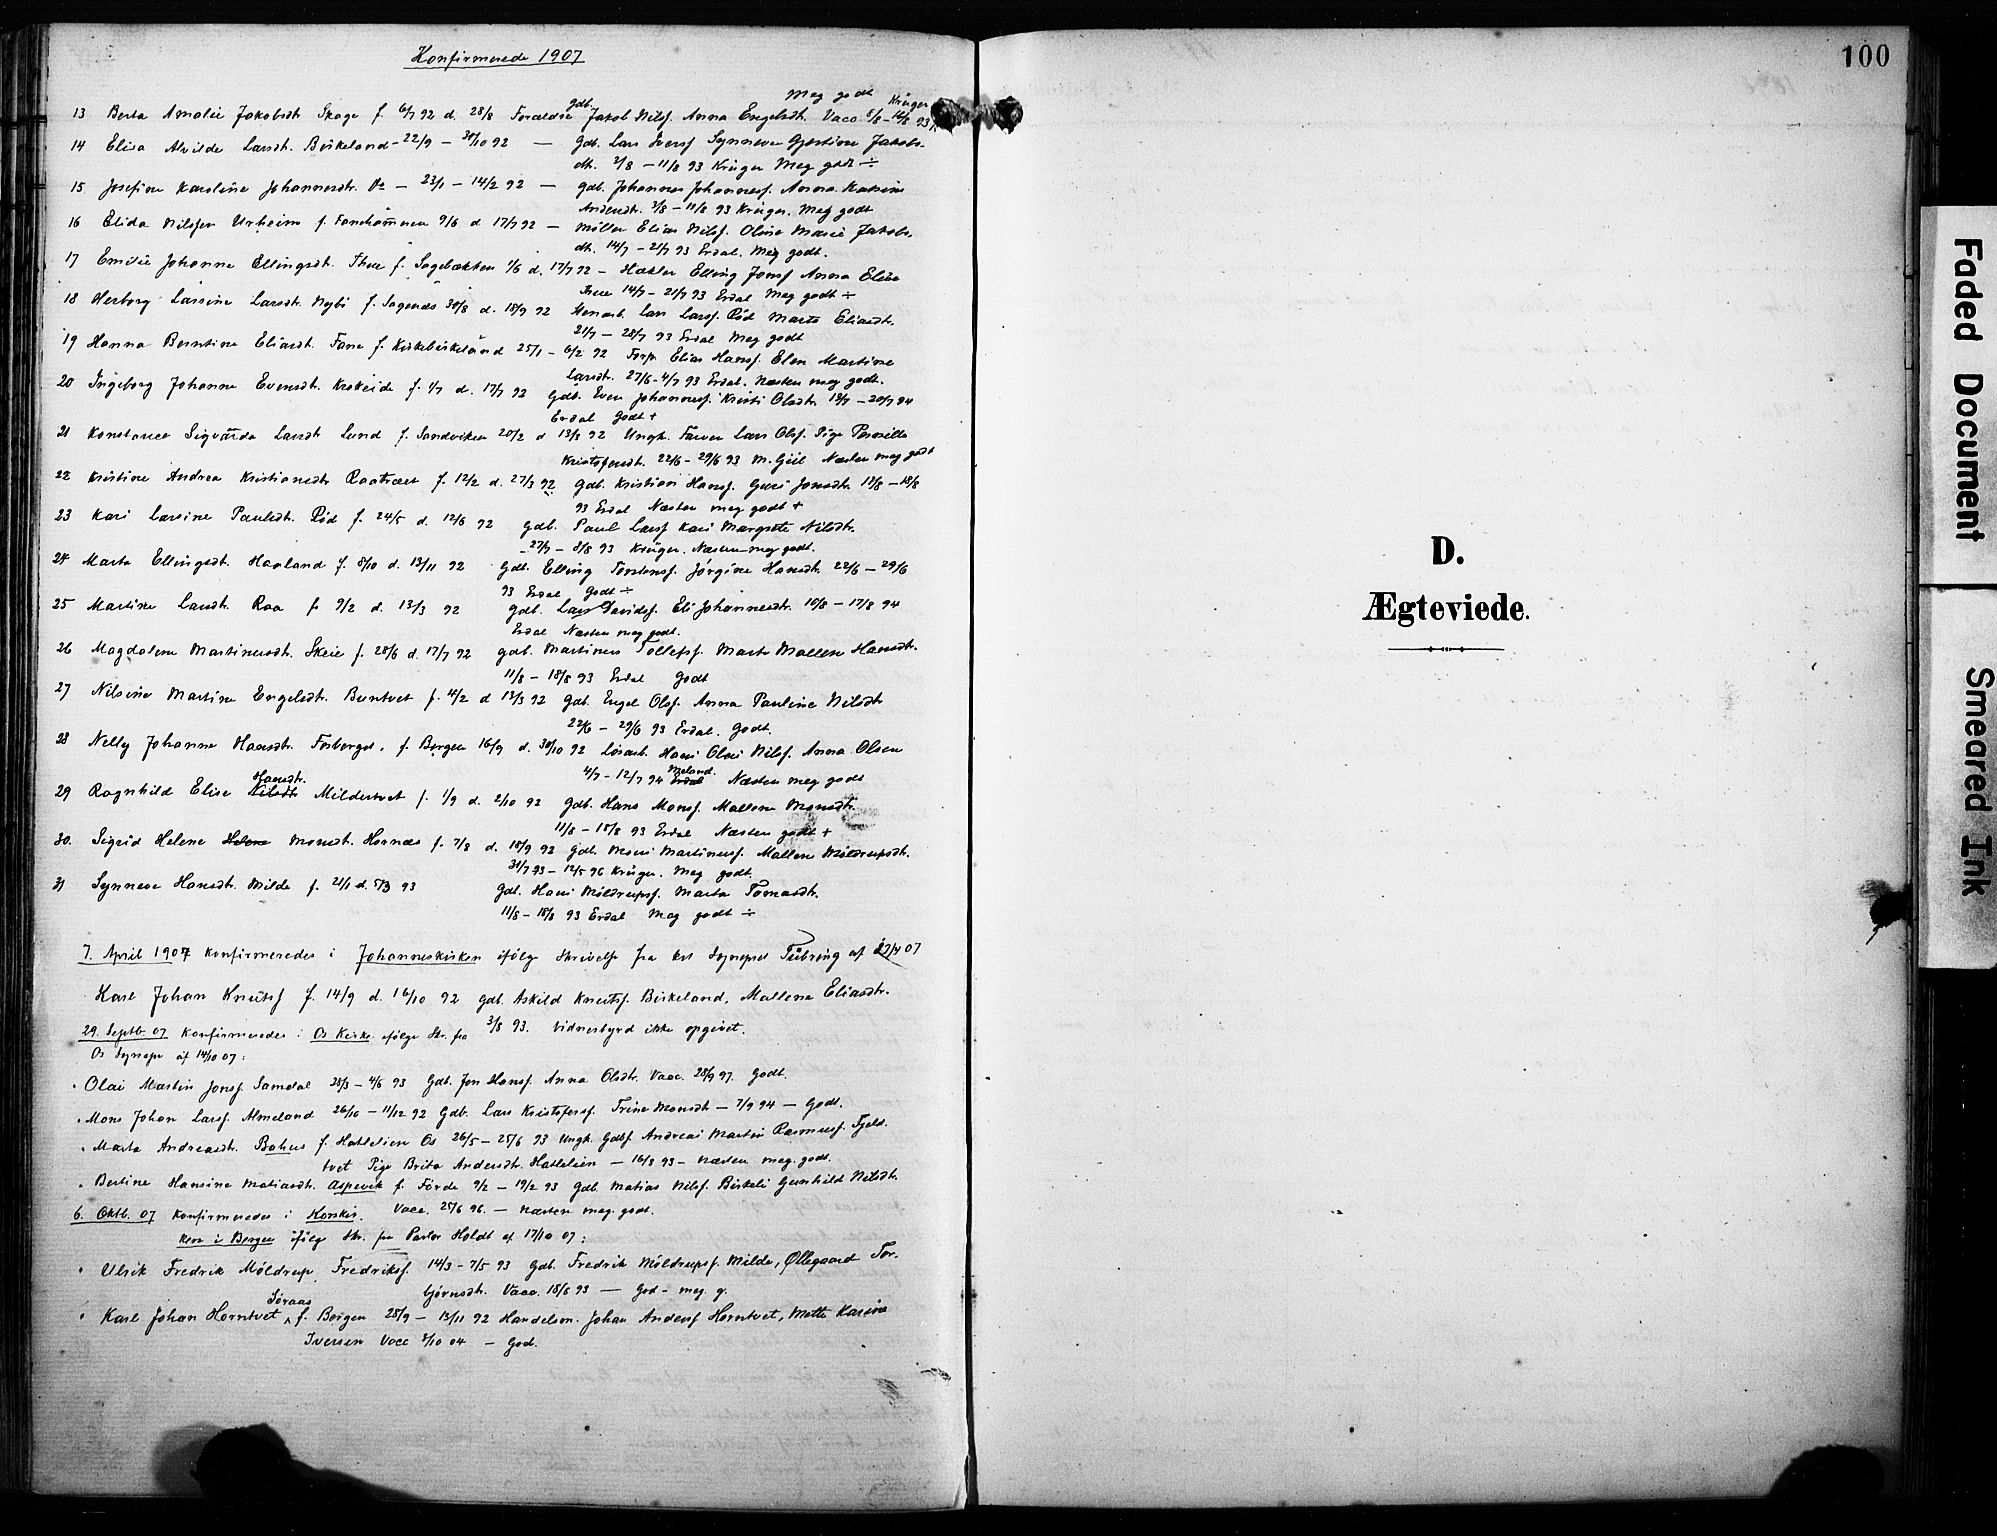 Konfirmerede 1907
Meg godt Krüger
13 Berta Amalie Jakobsdt. Skage f. 6/7 92 d. 28/8 Forældre gdb. Jakob Nilsf. Anna Engelsdt. Vacc. 5/8 – 12/8 93
14 Elisa Alvilde Larsdt. Birkeland – 22/9 – 30/10 92 — Gdb. Lars Iversf. Synneve Gjertine Jakobs-
dt. 3/8 – 11/8 93 Krüger Meg godt ÷
15 Josefine Karoline Johannesdt. Os – 23/1 – 14/2 92 — Gdb. Johannes Johannesf. Anna Katrine
Andersdt. 3/8 – 11/8 93 Krüger. Meg godt
16 Elida Nilsen Urheim f. Fanehammeren 9/6 d 17/7 92 — Møller Elias Nilsf. Oline Marie Jakobs.
dt. 14/7 – 21/7 93 Erdal. Meg godt.
17 Emilie Johanne Ellingsdt. Thue f. Sagebakken 1/6 d. 17/7 92 – Hækler Elling Jonsf. Anna Elise
Thue 14/7 – 21/7 93 Erdal Meg godt ÷
18 Herborg Larsine Larsdt. Nybö f. Sagenæs 30/8 d. 18/9 92 Stenarb. Lars Larsf. Röd Marta Eliasdt.
21/7 – 28/7 93 Erdal Meg godt
19 Hanna Berntine Eliasdt. Fane f. Kirkebirkeland 25/1 – 6/2 92 Forp. Elias Hansf. Elen Martine
Larsdt. 27/6 – 4/7 93 Erdal. Næsten meg godt.
20 Ingeborg Johanne Evensdt. Krokeide f. 1/7 d. 17/7 92 Gdb. Even Johannesf. Kristi Olsdt. 13/7 – 20/7 94
Erdal Godt +
21 Konstance Sigvarda Larsdt. Lund f. Sandviken 20/2 d 13/3 92 Ungk. Farver Lars Olsf. Pige Pernille
Kristofersdt. 22/6 – 29/6 93 M. Giil Næsten meg godt
22 Kristine Andrea Kristiansdt. Raatræet f. 12/2 d. 27/3 92 gdb. Kristian Hansf. Guri Jonsdt. 11/8 – 18/8
93 Erdal Næsten meg godt +
23 Kari Larsine Paulsdt. Röd f. 24/5 d. 12/6 92 gdb. Paul Larsf. Kari Margrete Nilsdt.
27/7 – 3/8 93 Krüger. Næsten meg godt.
24 Marta Ellingsdt. Haaland f. 8/10 d. 13/11 92 Gdb. Elling Torstensf. Jörgine Hansdt. 22/6 – 29/6
93 Erdal Godt ÷
25 Martine Larsdt. Raa f. 9/2 d. 13/3 92 Gdb. Lars Davidsf. Eli Johannesdt. 10/8 – 17/8 94
Erdal Næsten meg godt.
26 Magdalene Martinusdt. Skeie f. 28/6 d. 17/7 92 gdb. Martinus Tollefsf. Marta Mallene Hansdt.
11/8 – 18/8 93 Erdal Godt
27 Nilsine Martine Engelsdt. Buntvet f. 4/2 d 13/3 92 gdb. Engel Olsf. Anna Pauline Nilsdt
22/6 – 29/6 93 Erdal. Godt.
28 Nelly Johanne Hansdt. Forberged. f. Bergen 16/9 d. 30/10 92 Lösarb. Hans Olai Nilsf. Anna Olsen
4/7 – 12/7 94 Erdal Meland. Næsten meg godt
29 Ragnhild Elise Nilsdt Hansdt. Mildertvet f. 1/9 d. 2/10 92 Gdb. Hans Monsf. Mallene Monsdt.
11/8 – 18/8 93 Erdal Næsten godt +
30. Sigrid Helene Helene Monsdt. Hornæs f. 7/8 d. 18/9 92 Gdb. Mons Martinusf. Mallene Möldrupsdt.
31/7 93 – 12/5 96 Krüger. Meg godt.
31 Synneve Hansdt. Milde f. 21/1 d. 5/3 93 Gdb. Hans Möldrupsf. Marta Tomasdt.
11/8 – 18/8 93 Erdal Meg godt ÷
7. April 1907 konfirmeredes i Johanneskirken ifölge skrivelse fra res. sognepr. Fübring af 23/4 07
Karl Johan Knutsf f. 14/9 d. 16/10 92 gdb. Askild Knutsf. Birkeland, Mallene Eliasdt.
3/8 93. Vidnesbyrd ikke opgivet.
29. Septb. 07 Konfirmeredes i Os Kirke ifölge Skr. fra
Os Sognepr. af 14/10 07:
Olai Martin Jonsf. Samdal 28/3 – 4/6 93 Gdb. Jon Hansf. Anna Olsdt. Vacc. 28/9 97. Godt.
Mons Johan Larsf. Almeland 26/10 – 11/12 92 Gdb. Lars Kristofersf. Trine Monsdt – 7/9 94 – Godt.
Marta Andreasdt. Bahus f. Hatlelien Os 26/5 – 25/6 93 Ungk. Gdbf. Andreas Martin Rasmusf. Tjeld-
tvet Pige Brita Andersdt. Hatlelien – 16/3 93 – næsten meg. godt.
Bertine Hansine Matiasdt. Aspevik f. Förde 9/2 – 19/2 93 Gdb. Matias Nilsf. Birkeli Gunhild Nilsdt.
Vacc. 25/6 96. – næsten meg. godt.
6. Oktb. 07 Konfirmeredes i Korskir.
ken i Bergen ifölge Skr. fra Pastor Holdt af 17/10 07:
Ulrik Fredrik Möldrup Fredriksf. 14/3 – 7/5 93 Gdb. Fredrik Möldrupsf. Milde, Øllegaard Tor-
björnsdt. Vacc. 18/8 93 — God – meg g.
Karl Johan Horntvet Søraas f. Bergen 28/9 – 13/11 92 Handelsm. Johan Andersf. Horntvet, Mette Karine
Iversen Vacc 3/10 04 – God.
100
D.
Ægteviede.
Faded Document
Smeared Ink